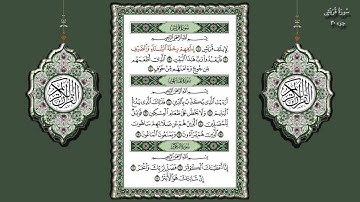 سورة قريش
جزء ٣٠
سورة قريش
بسم الله الرحمن الرحيم
لإيلاف قريش ۝ إيلافهم رحلة الشتاء والصيف
۝ فليعبدوا رب هذا البيت ۝ الذي أطعمهم
من جوع وآمنهم من خوف ۝
سورة الماعون
بسم الله الرحمن الرحيم
أرأيت الذي يكذب بالدين ۝ فذلك الذي يدع
اليتيم ۝ ولا يحض على طعام المسكين ۝ فويل
للمصلين ۝ الذين هم عن صلاتهم ساهون
۝ الذين هم يراءون ۝ ويمنعون الماعون ۝
سورة الكوثر
بسم الله الرحمن الرحيم
إنا أعطيناك الكوثر ۝ فصل لربك وانحر ۝
إن شانئك هو الأبتر ۝
القرآن الكريم
القرآن الكريم